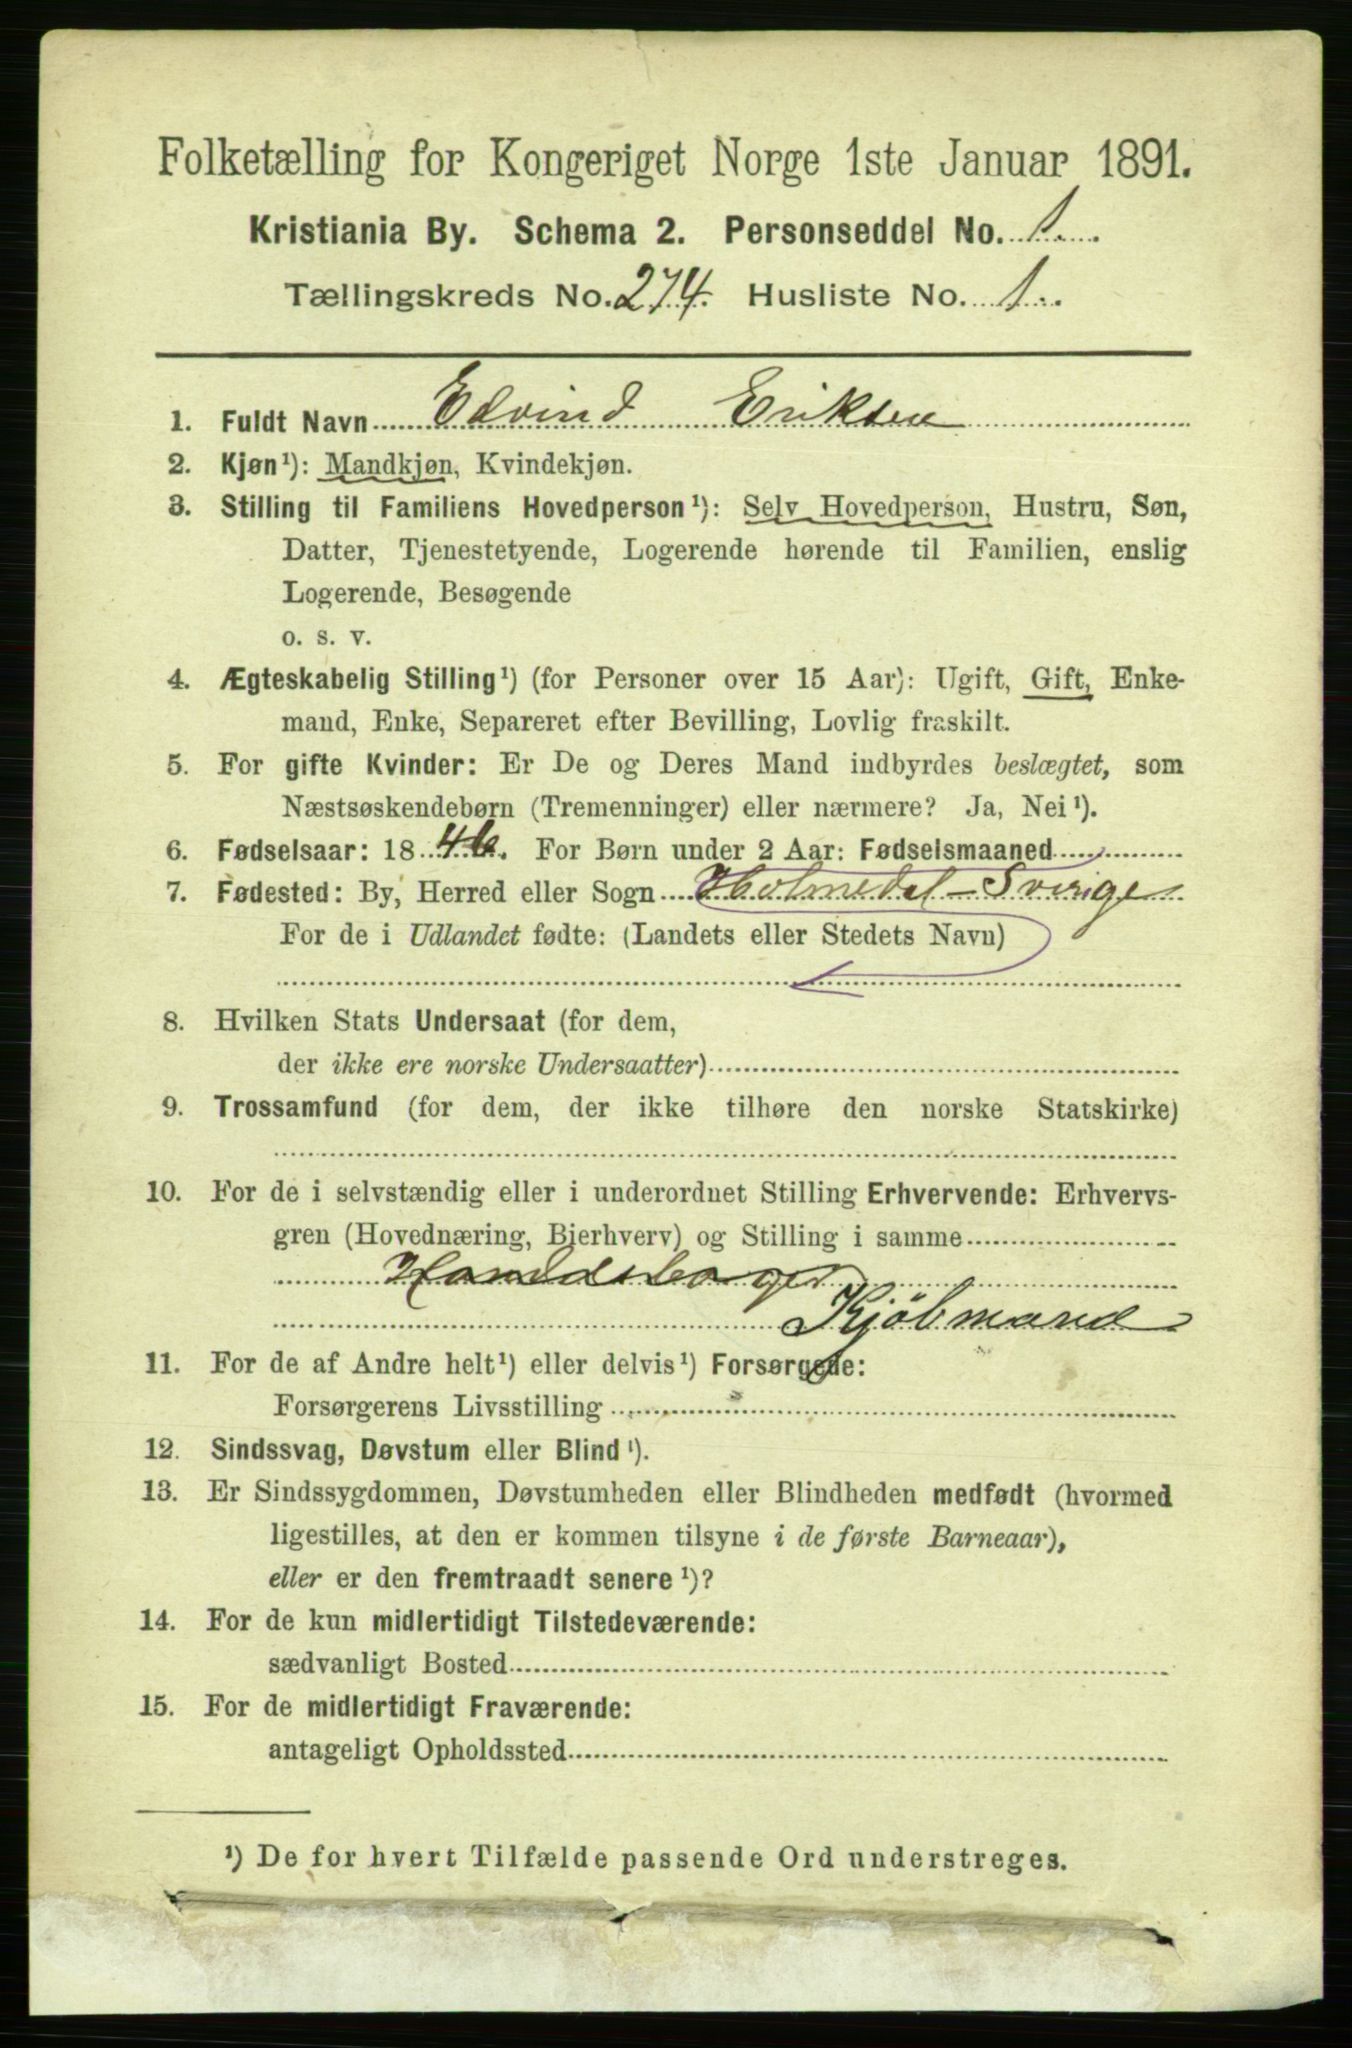 Folketælling for Kongeriget Norge 1ste Januar 1891.
Kristiania By. Schema 2. Personseddel No. 1.
Tællingskreds No. 274. Husliste No. 1.
1. Fuldt Navn Edvind Eriksen
2. Kjøn¹): Mandkjøn, Kvindekjøn.
3. Stilling til Familiens Hovedperson¹): Selv Hovedperson, Hustru, Søn,
Datter, Tjenestetyende, Logerende hørende til Familien, enslig
Logerende, Besøgende
o. s. v.
4. Ægteskabelig Stilling¹) (for Personer over 15 Aar): Ugift, Gift, Enke-
mand, Enke, Separeret efter Bevilling, Lovlig fraskilt.
5. For gifte Kvinder: Er De og Deres Mand indbyrdes beslægtet, som
Næstsøskendebørn (Tremenninger) eller nærmere? Ja, Nei¹).
6. Fødselsaar: 1846. For Børn under 2 Aar: Fødselsmaaned
7. Fødested: By, Herred eller Sogn Holmedal - Sverige
For de i Udlandet fødte: (Landets eller Stedets Navn)
8. Hvilken Stats Undersaat (for dem,
der ikke ere norske Undersaatter)
9. Trossamfund (for dem, der ikke tilhøre den norske Statskirke)
10. For de i selvstændig eller i underordnet Stilling Erhvervende: Erhvervs-
gren (Hovednæring, Bierhverv) og Stilling i samme
Kjøbmand
11. For de af Andre helt¹) eller delvis¹) Forsørgede:
Forsørgerens Livsstilling
12. Sindssvag, Døvstum eller Blind¹).
13. Er Sindssygdommen, Døvstumheden eller Blindheden medfødt (hvormed
ligestilles, at den er kommen tilsyne i de første Barneaar),
eller er den fremtraadt senere¹)?
14. For de kun midlertidigt Tilstedeværende:
sædvanligt Bosted
15. For de midlertidigt Fraværende:
antageligt Opholdssted
¹) De for hvert Tilfælde passende Ord understreges.